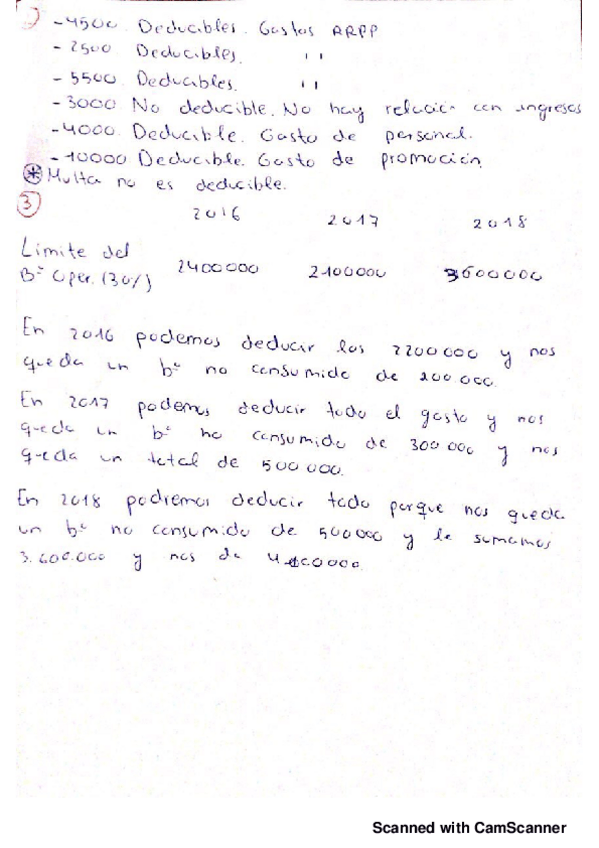 - 4500. Deducibles. Gastos RRPP
- 2500 Deducibles. ' '
- 5500 Deducibles. ' '
- 3000 No deducible. No hay relación con ingresos
- 4000. Deducible. Gasto de personal.
- 10000 Deducible. Gasto de promoción.
* Multa no es deducible.
3
2016 2017 2018
Límite del
Bº Oper. (30%) 2400000 2100000 3600000
En 2016 podemos deducir los 2200000 y nos
queda un bº no consumido de 200 000.
En 2017 podemos deducir todo el gasto y nos
queda un bº no consumido de 300 000 y nos
queda un total de 500 000.
En 2018 podremos deducir todo porque nos queda
un bº no consumido de 500000 y le sumamos
3.600.000 y nos da
Scanned with CamScanner